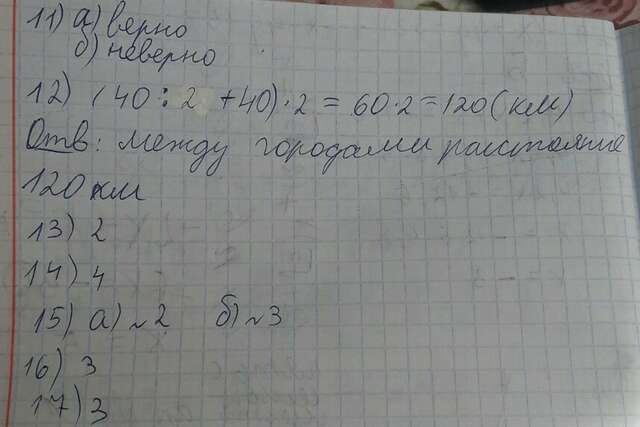 11) а) верно
б) неверно
12) (40 : 2 + 40) · 2 = 60 · 2 = 120 (км)
Отв: между городами расстояние
120 км
13) 2
14) 4
15) а) ~2 б) ~3
16) 3
17) 3